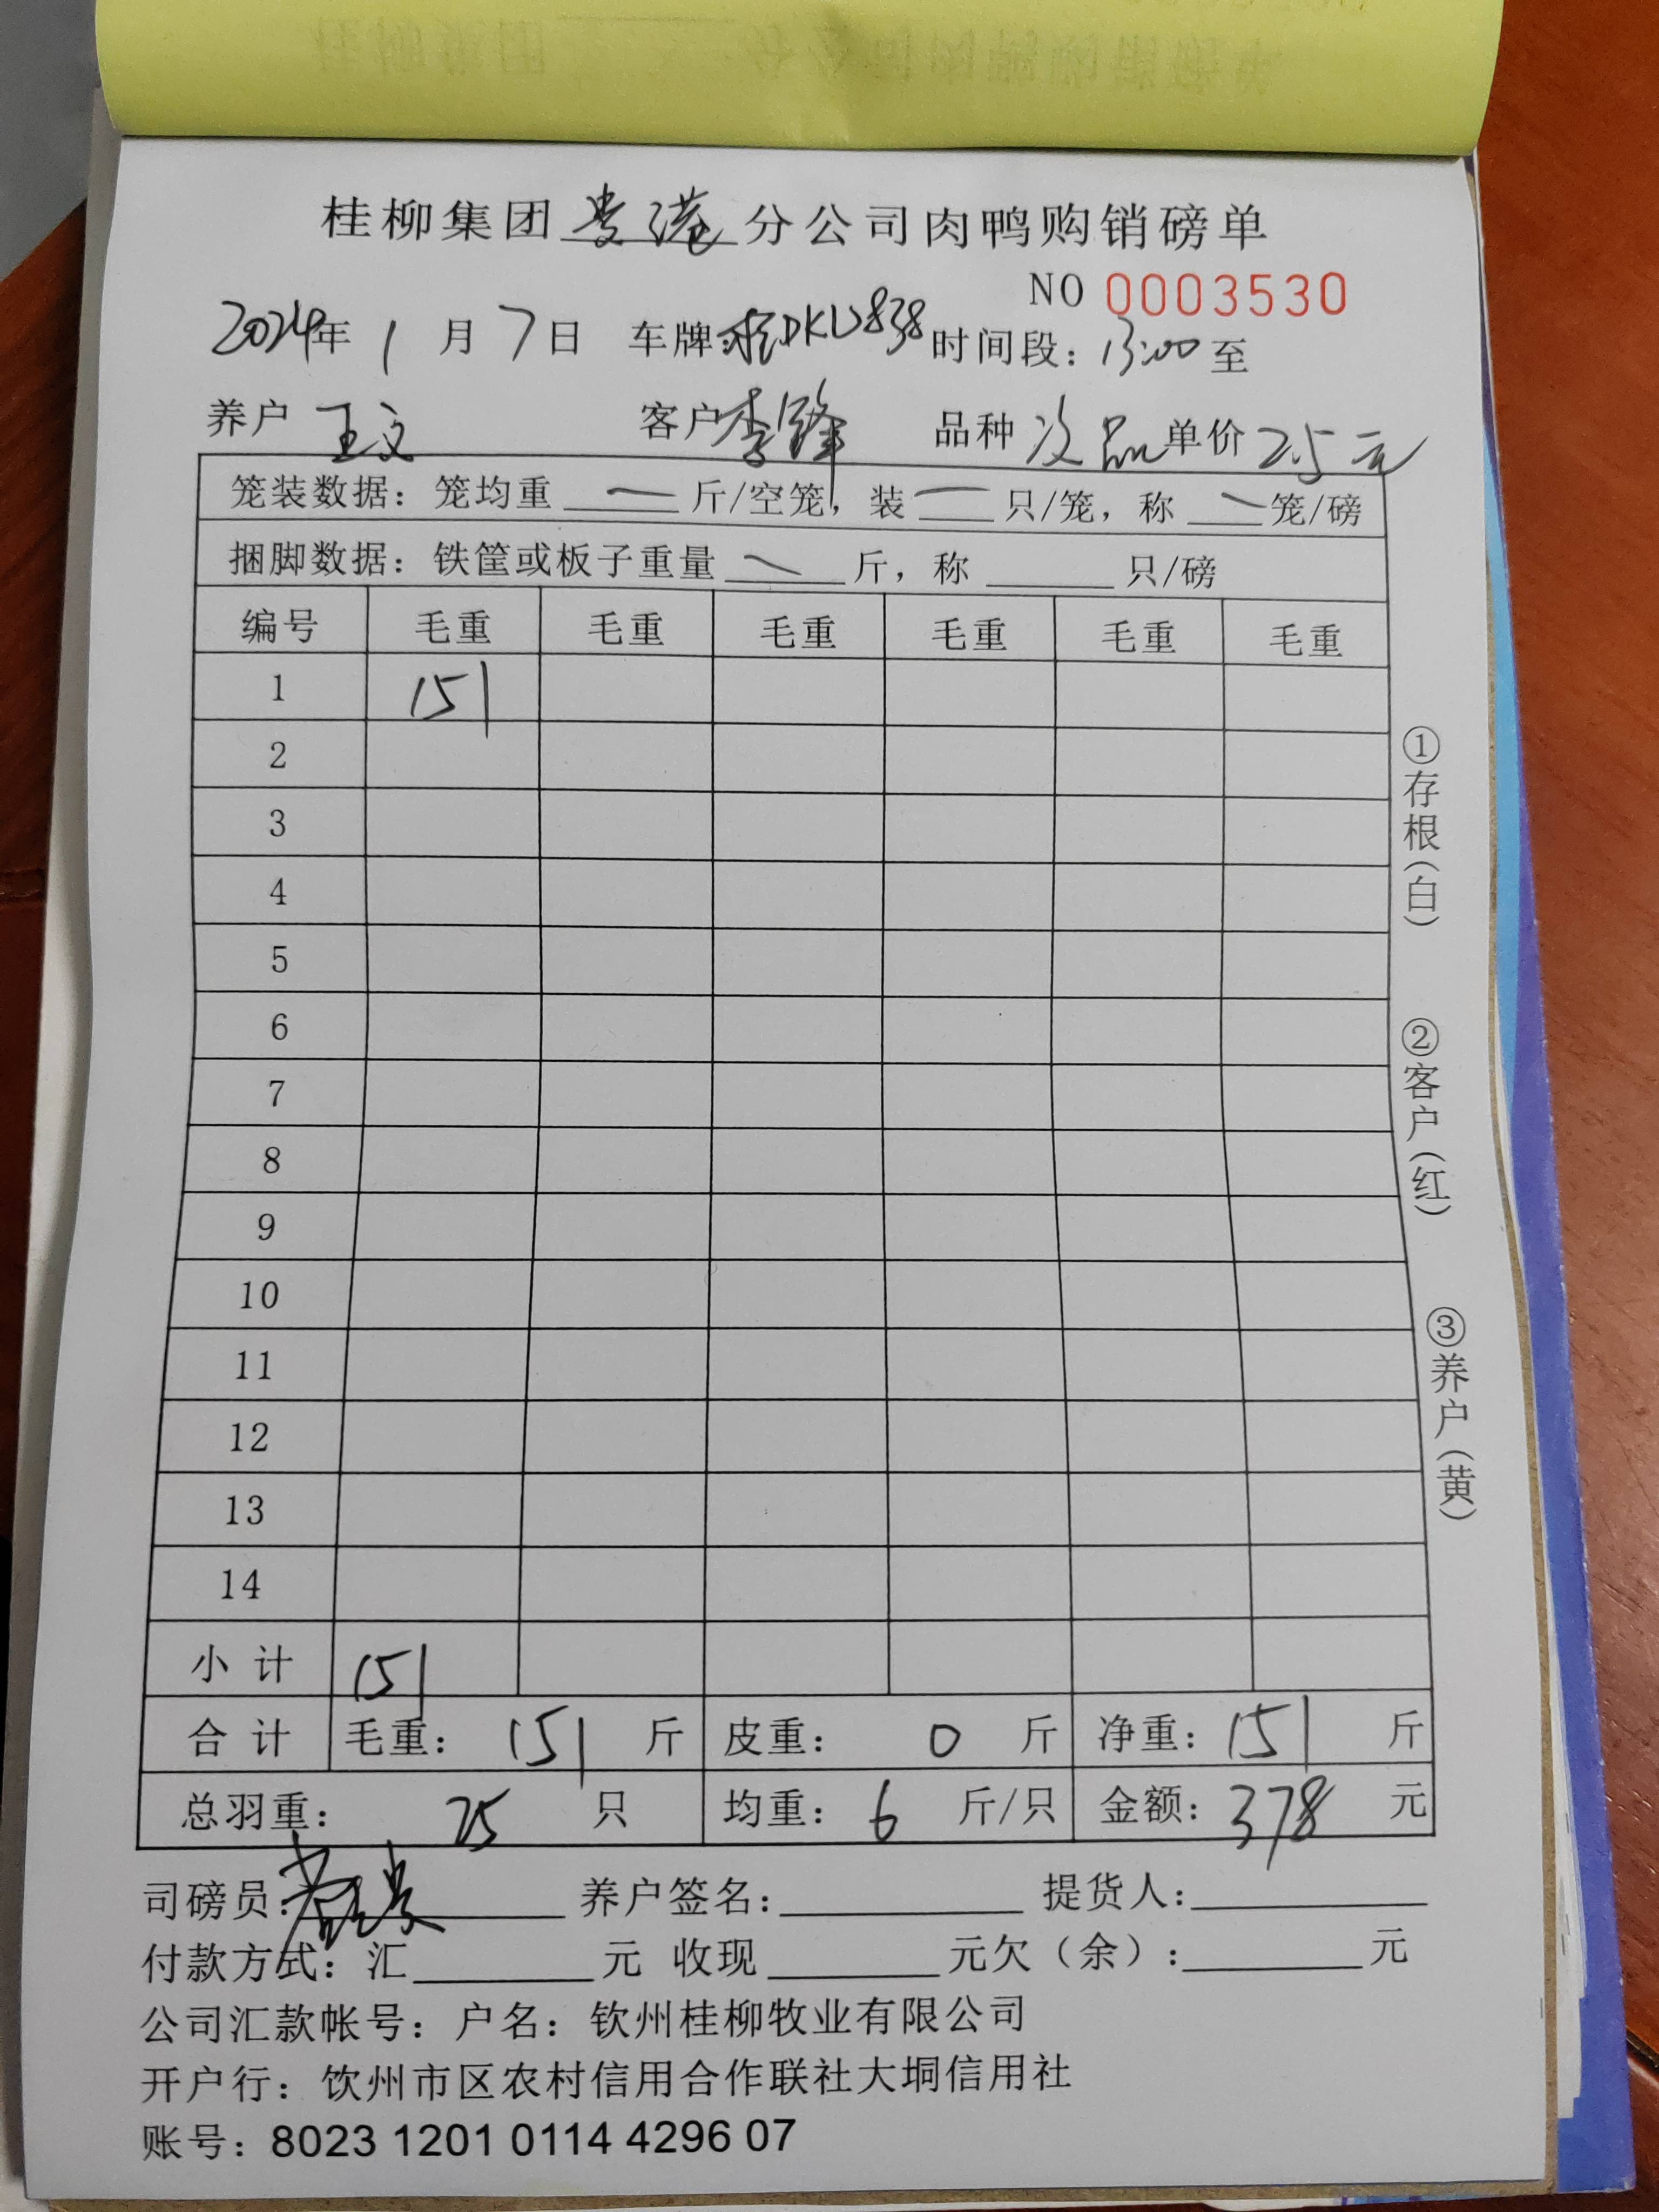 桂柳集团贵港分公司肉鸭购销磅单
NO 0003530
2024年 1 月 7 日 车牌:桂DKU838 时间段：13:00 至
养户 王文 客户 李锋 品种 次品 单价 2.5元
笼装数据：笼均重 — 斤/空笼，装 — 只/笼，称 — 笼/磅
捆脚数据：铁筐或板子重量 — 斤，称 只/磅
编号 毛重 毛重 毛重 毛重 毛重 毛重
1 151
2
3
4
5
6
7
8
9
10
11
12
13
14
小计 151
合计 毛重：151 斤 皮重：0 斤 净重：151 斤
总羽重：75 只 均重：6 斤/只 金额：378 元
司磅员： 养户签名： 提货人：
付款方式：汇 元 收现 元欠（余）： 元
公司汇款帐号：户名：钦州桂柳牧业有限公司
开户行：饮州市区农村信用合作联社大垌信用社
账号：8023 1201 0114 4296 07
①存根（白）
②客户（红）
③养户（黄）